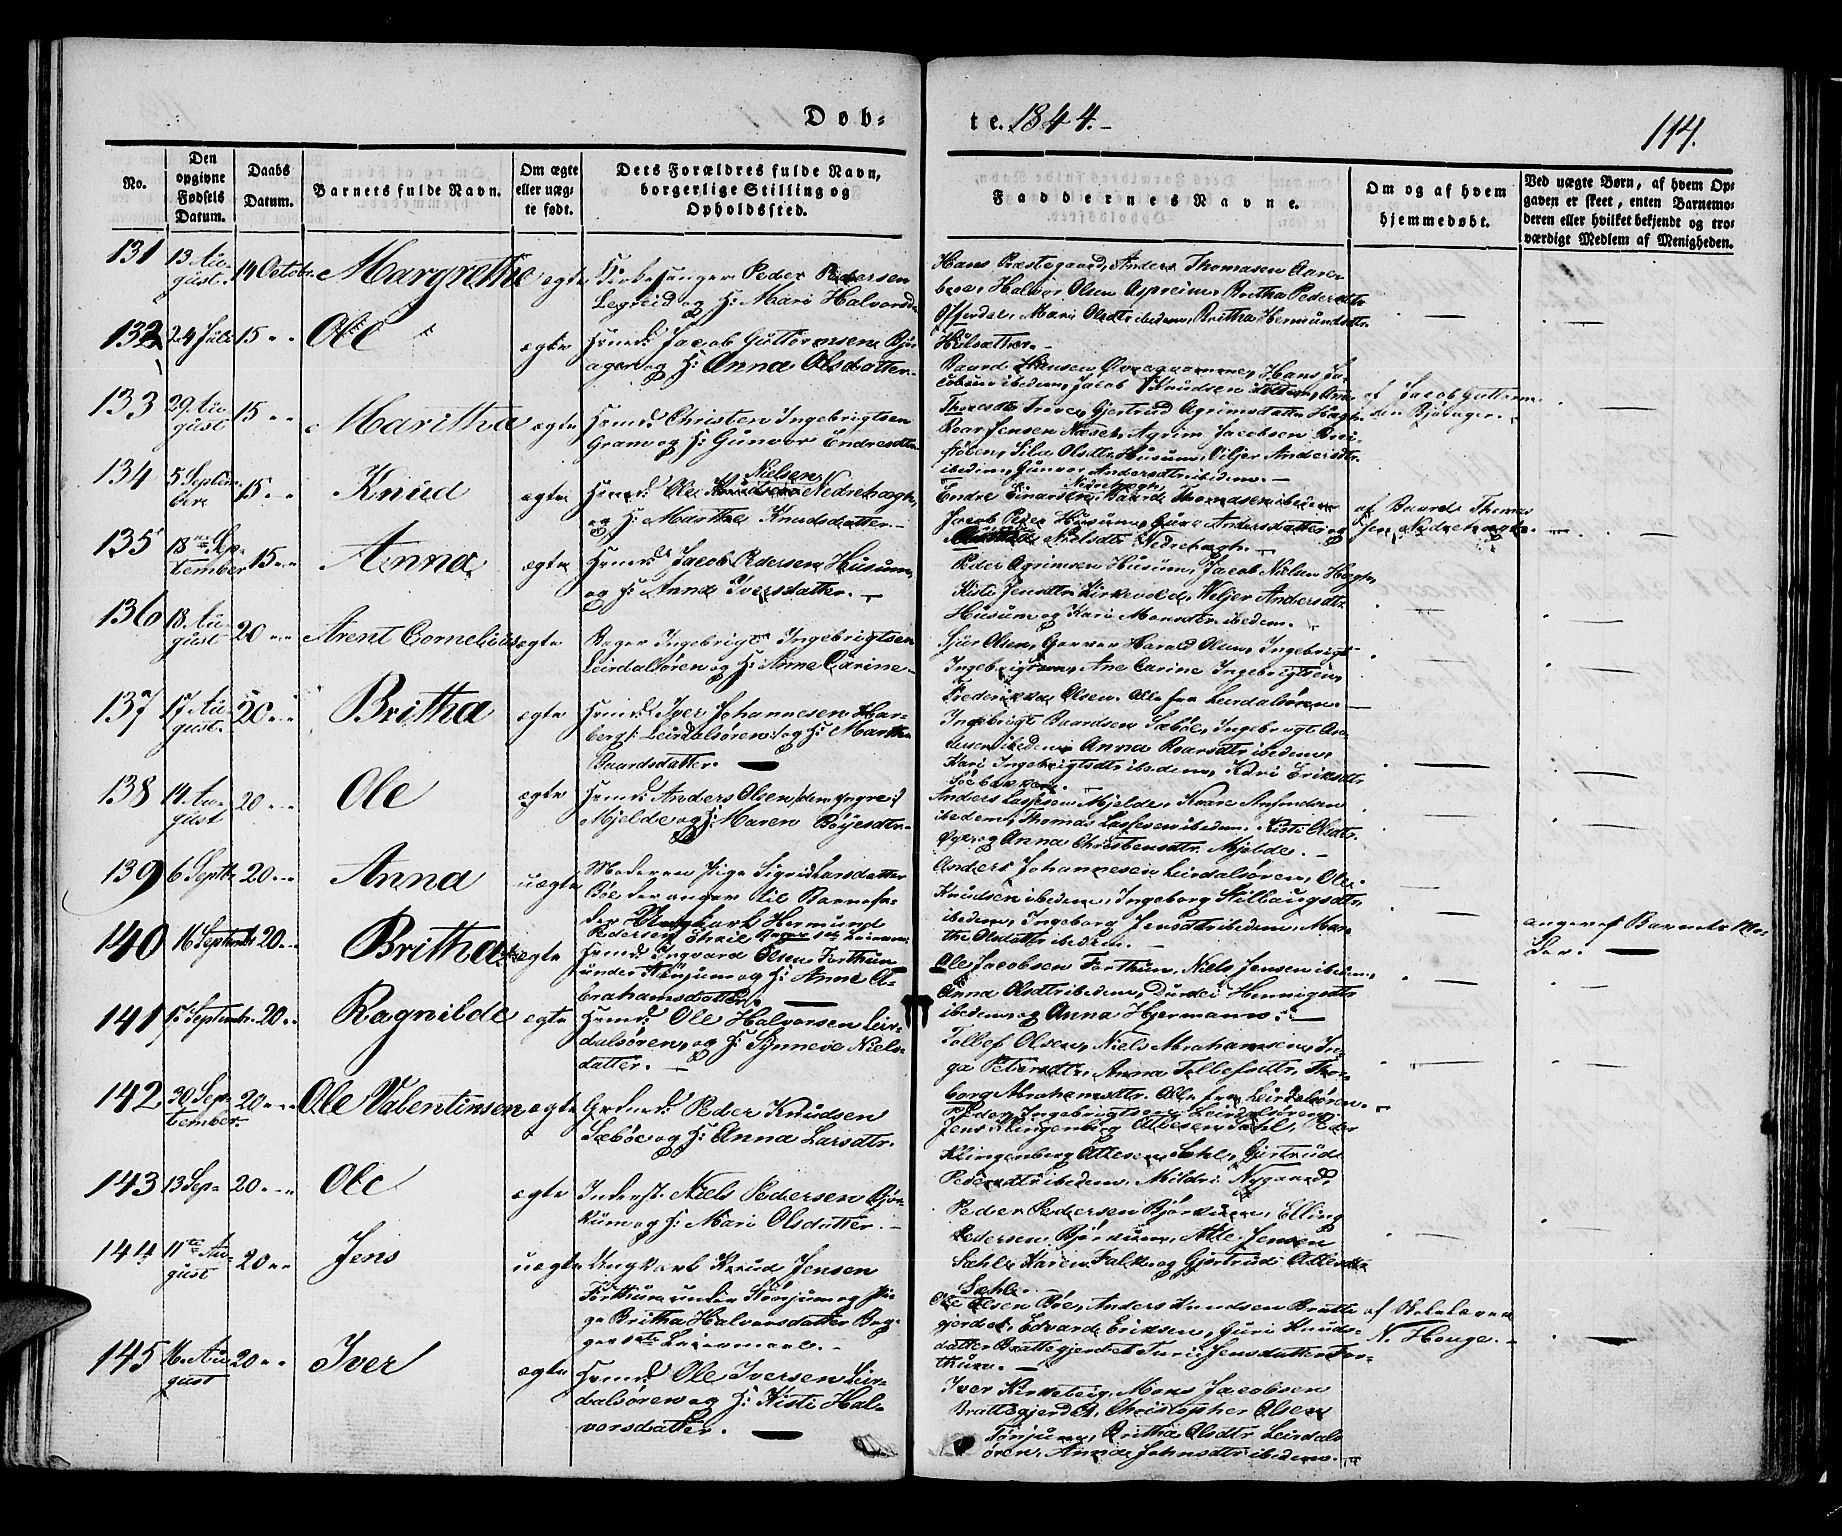 Døb-
te. 1844.-
114.
No.
Den opgivne Fødsels Datum.
Daabs Datum.
Barnets fulde Navn.
Om ægte eller uæg-te født.
Dets Forældres fulde Navn, borgerlige Stilling og Opholdssted.
Faddernes Navne.
Om og af hvem hjemmedøbt.
Ved uægte Børn, af hvem Op-gaven er skeet, enten Barnemo-deren eller hvilket bekjendt og tro-værdigt Medlem af Menigheden.
131 13 Au-gust. 14 Octobr. Margretha ægte Kirkesanger Peder Pedersen
Legreid og H: Mari Halvorsd
Hans Præstegaard, Anders Thomasen Aare-
bøe, Halvor Olsen Aspreim, Britha Pedersdtr
Offerdal, Mari Olsdtr ibidem, Britha Hermundsdtr
132 24 Juli 15 " " Ole ægte Huusmd: Jacob Guttormsen Bjø-
ager og H: Anna Olsdatter.
Baard Hansen Øvregaarme, Hans Ja-
cobsen ibidem, Jacob Knudsen ibidem,
af Jacob Guttorm-
sen Bjørager.
133 29 Au-gust 15 " " Maritha ægte Huusmd: Christen Ingebrigtsen
Gram og H: Gunvor Endresdtr
Thoresdtr Trave, Gjertrud Agrimsdatter Hægh,
Roar Jensen Næset, Agrim Jacobsen
Sila Olsdtr Husum, Viljer Andersdtr
ibidem, Gunvor Andersdtr ibidem.
134 5 Septem-ber 15 " " Knud ægte Huusmd: Ole Nielsen Nedrehægh,
og H: Marthe Knudsdatter.
Endre Einarsen Nedrehægh, Baard Thomasen ibidem
Jacob Peder Husum, Guri Andersdatter og
Nielsdtr Nedrehægh.
af Baard Thoma-
sen Nedrehægh.
135 18 Sep-tember 15 " " Anna ægte Huusmd: Jacob Pedersen Husum,
og H: Anna Iversdatter.
Peder Agrimsen Husum, Jacob Nielsen Hægh,
Kisti Jensdtr Kirkevold, Veljer Andersdtr
Husum og Kari Monsdtr ibidem.
136 18 Au-gust 20 " " Arent Cornelius ægte Bager Ingebrigt Ingebrigtsen
Leirdalsøren og H: Anne Carine
Sjur Olsen, Garver Harald Olsen, Ingebrigt
Ingebrigtsen, Ane Carine Ingebrigtsen,
Frederikka Olsen. Alle fra Leirdalsøren.
137 17 Au-gust. 20 " " Britha ægte Huusmd: Iver Johannesen Har-
berg, Leirdalsøren og H: Martha
Baardsdatter.
Ingebrigt Baardsen Sæbøe, Ingebrigt
ibidem, Anna Roarsdtr ibidem,
Kari Ingebrigtsdtr ibidem, Kari Eriksdtr
138 14 Au-gust 20 " " Ole ægte Huusmd: Anders Olsen /: den yngre :/
Mjelde og H: Maren Bøyesdtr
Anders Lassesen Mjelde, Knare Amundsen
ibidem, Thomas Lassesen ibidem, Kisti Olsdtr
og Anna Christensdtr Mjelde.
139 6 Septbr 20 " " Anna uægte Moderen Pige Sigrid Larsdatter
Bøe der anger til Barnefa-
der Ungkarl Hermund
Pedersen
Anders Johannesen Leirdalsøren, Ole
Knudsen ibidem, Ingeborg Stillaugsdtr
ibidem, Ingeborg Jensdtr ibidem, Mar-
the Olsdatter ibidem.
angivet af Barnets Mo-
der.
140 16 Septembr 20 " " Britha ægte Huusmd: Ingvard Olsen Forthun
under Tønjum og H: Anne A-
brahamsdatter.
Ole Jacobsen Forthun, Niels Jensen ibidem,
Anna Olsdtr ibidem, Durdei Henningsdtr
ibidem, og Anna Hjermann.
141 15 Septembr. 20 " " Ragnilde ægte Huusmd: Ole Halvorsen Leir-
dalsøren, og H: Synneve Niels-
datter.
Tollef Olsen, Niels Abrahamsen, In-
ga Petersdtr, Anna Tollefsdtr, Thor-
borg Abrahamsdtr. Alle fra Leirdalsøren.
142 30 Sep-tember 20 " " Ole Valentinsen ægte Grdmd: Peder Knudsen
Sæbøe og H: Anna Larsdtr.
Peder Ingebrigtsen Leirdalsøren,
Jens Klingenberg Attesen Sæhl, Peder
Klingenberg Attesen Sæhl, Gjertrud
Pedersdtr ibidem, Mildri Nygaard,
143 13 Sep. 20 " " Ole ægte Inderst Niels Pedersen Bjør-
kum og H: Mari Olsdatter.
Peder Pedersen Bjørkum, Elling
Pedersen Bjørkum, Atte Jensen
Sæhl, Karen Falk og Gjertrud Attesdtr
Sæhl.
144 11te Au-gust 20 " " Jens uægte Ungkarl Knud Jensen
Forthun under Tønjum og Pi-
ge Britha Halvorsdatter Beg-
ges 1ste Leiermaal.
Ole Olsen Bøe, Anders Knudsen Bratte
gjerdet, Edvard Eriksen, Guri Knuds-
datter Brattegjerdet, Turi Jensdatter For-
thun.
af Skolelærer
N. Houge.
145 16 Au-gust 20 " " Iver ægte Huusmd: Ole Iversen Leir-
dalsøren og H: Kisti Hal-
vorsdatter.
Iver Kirketeig, Mons Jacobsen
Brattegjerdet, Christopher Olsen
Tønjum, Britha Olsdtr Leirdals
øren, Anna Johnsdtr ibidem.